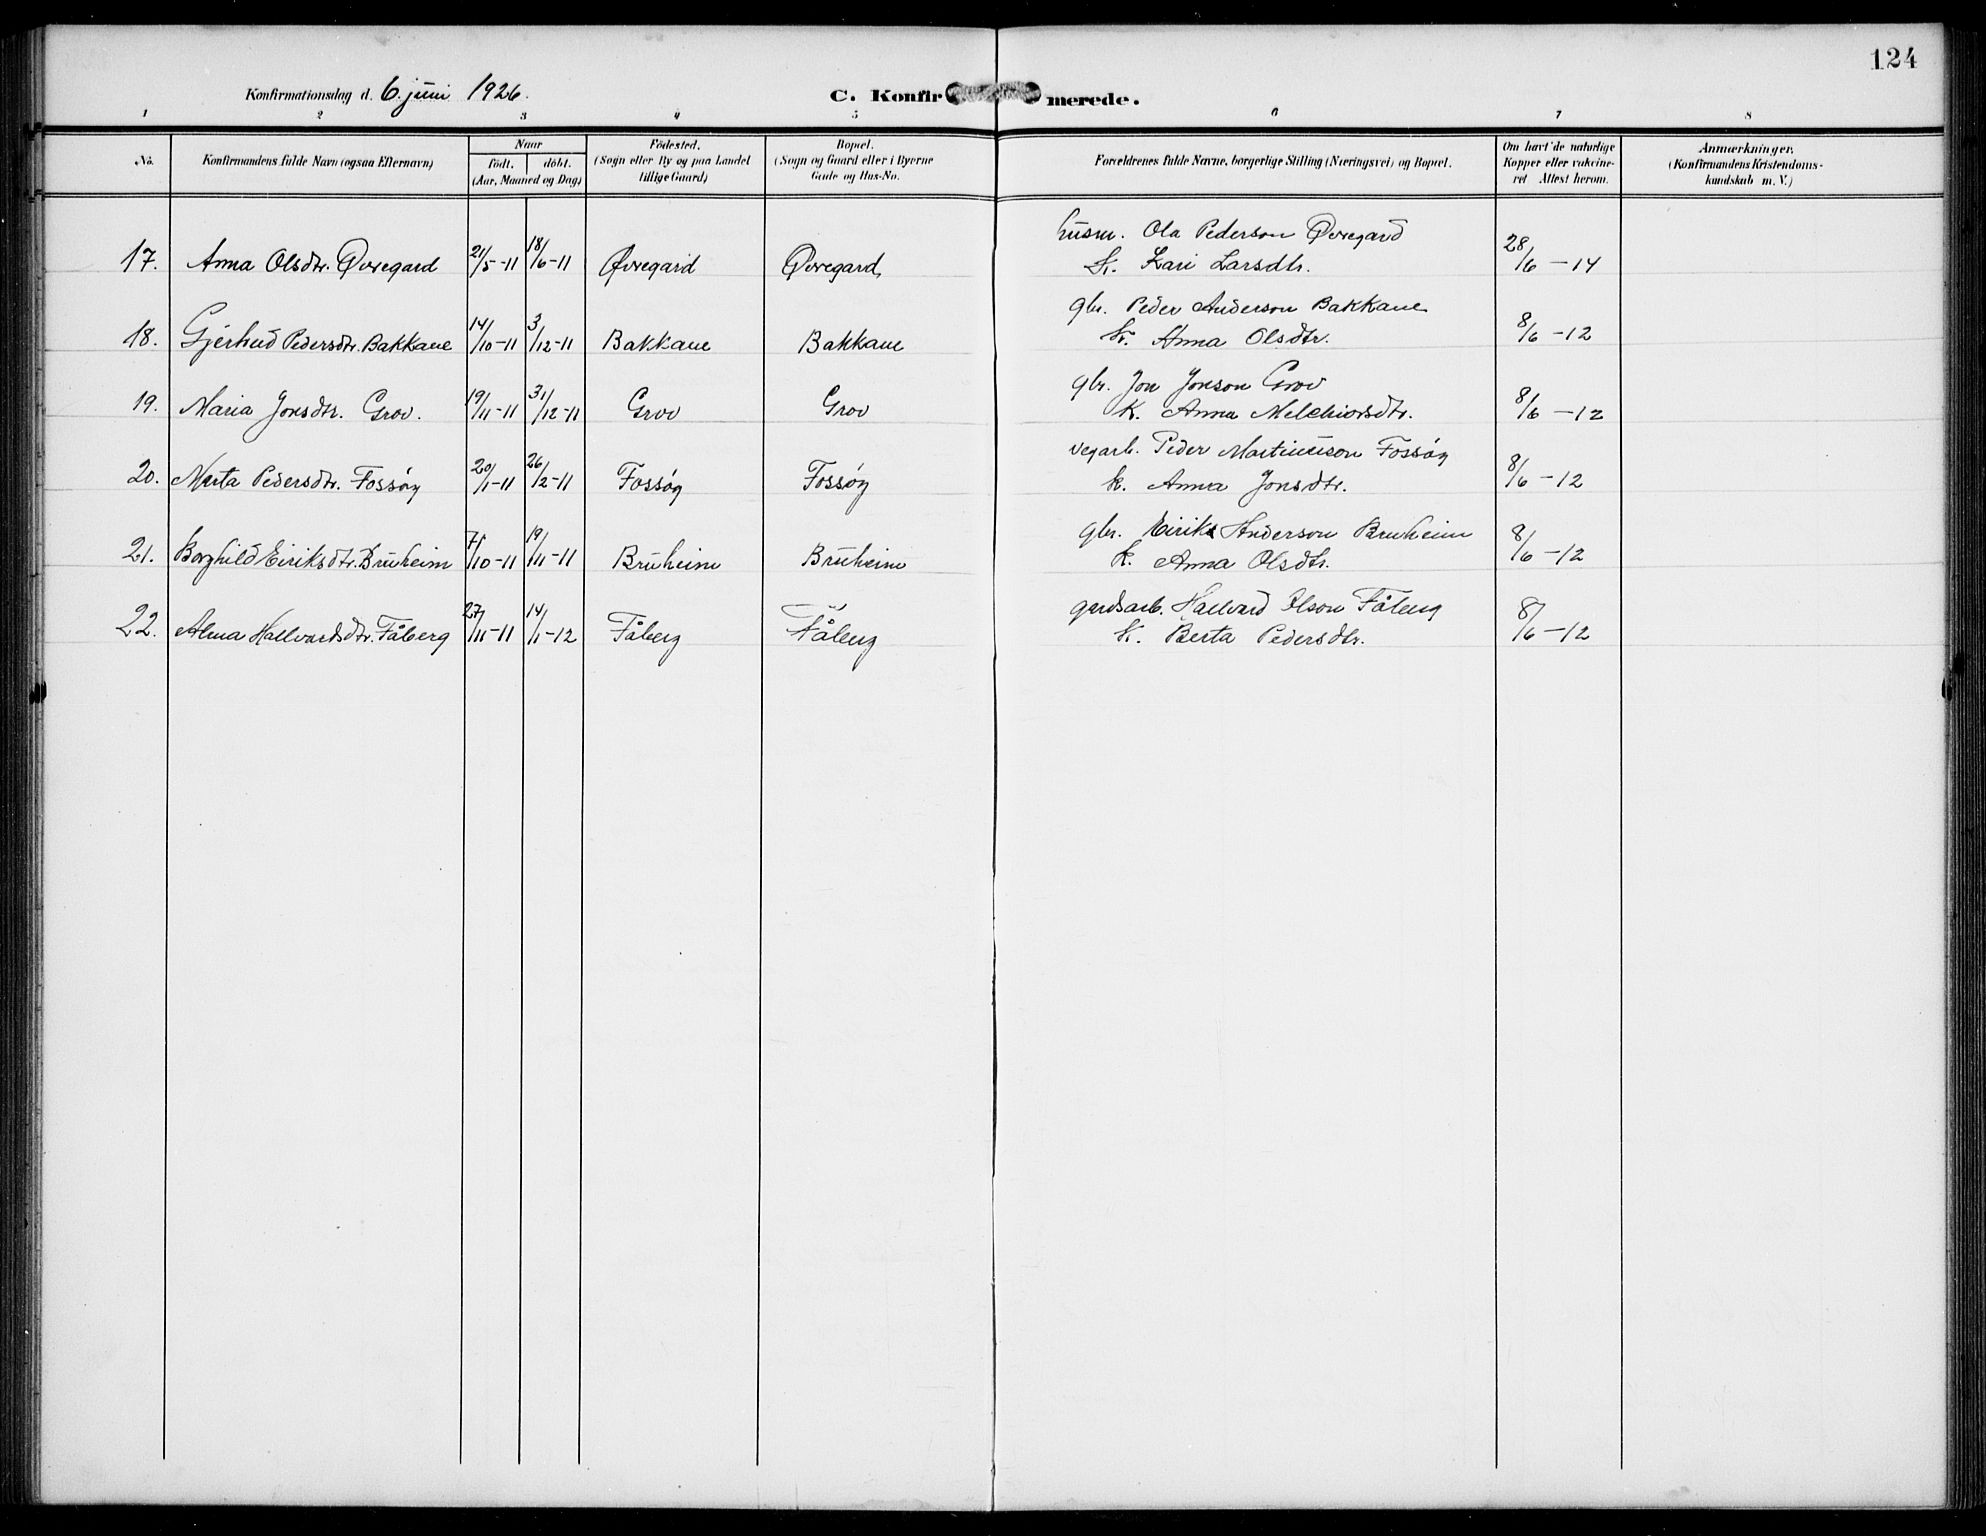 124
Konfirmationsdag d. 6. juni 1926.
C. Konfirmerede.
1 2 3 4 5 6 7 8
No. Konfirmandens fulde Navn (ogsaa Efternavn) Naar født. døbt. (Aar, Maaned og Dag) Fødested. (Sogn eller By og paa Landet tillige Gaard) Bopæl. (Sogn og Gaard eller i Byerne Gade og Hus-No. Forældrenes fulde Navne, borgerlige Stilling (Næringsvei) og Bopæl. Om havt de naturlige Kopper eller vakcineret Attest herom. Anmærkninger. (Konfirmandens Kristendomskundskab m. V.)
husm. Ola Pederson Øvregard
17. Anna Olsdtr. Øvregard 21/5-11 18/6-11 Øvregard Øvregard k. Kari Larsdtr. 28/6-14
gbr. Peder Anderson Bakkane
18. Gjertrud Pedersdtr. Bakkane 14/10-11 3/12-11 Bakkane Bakkane k. Anna Olsdtr. 8/6-12
gbr. Jon Jonson Grov
19. Maria Jonsdtr. Grov. 19/11-11 31/12-11 Grov Grov k. Anna Melchiorsdtr. 8/6-12
vegarb. Peder Martinuson Fossøy
20. Marta Pedersdtr. Fossøy 20/1-11 26/2-11 Fossøy Fossøy k. Anna Jonsdtr. 8/6-12
gbr. Eirik Anderson Bruheim
21. Borghild Eiriksdtr. Bruheim 7/10-11 19/11-11 Bruheim Bruheim k. Anna Olsdtr. 8/6-12
gardsarb. Hallvard Olson Fåberg
22. Alma Hallvardsdtr. Fåberg 27/11-11 14/1-12 Fåberg Fåberg k. Berta Pedersdtr. 8/6-12